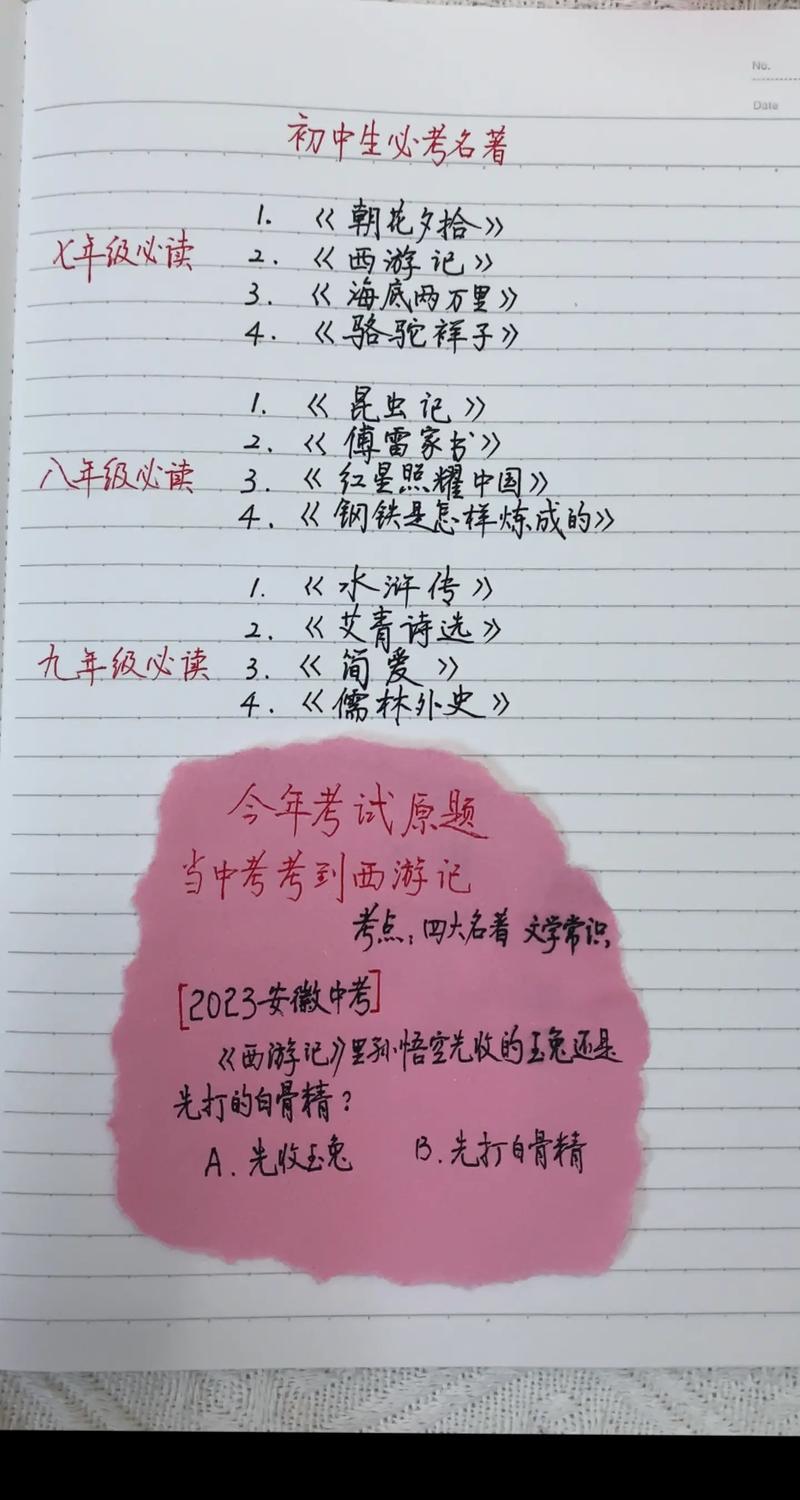 No.
Date
初中生必考名著
七年级必读
1. 《朝花夕拾》
2. 《西游记》
3. 《海底两万里》
4. 《骆驼祥子》
八年级必读
1. 《昆虫记》
2. 《傅雷家书》
3. 《红星照耀中国》
4. 《钢铁是怎样炼成的》
九年级必读
1. 《水浒传》
2. 《艾青诗选》
3. 《简爱》
4. 《儒林外史》
今年考试原题
当中考考到西游记
考点:四大名著 文学常识
[2023安徽中考]
《西游记》里孙悟空先收的玉兔还是
先打的白骨精?
A. 先收玉兔 B. 先打白骨精